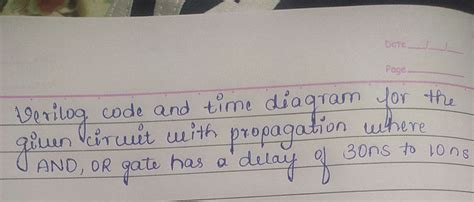 Date __/__/__
Page ______
Verilog code and time diagram for the
given circuit with propagation where
AND, OR gate has a delay of 30ns to 10ns